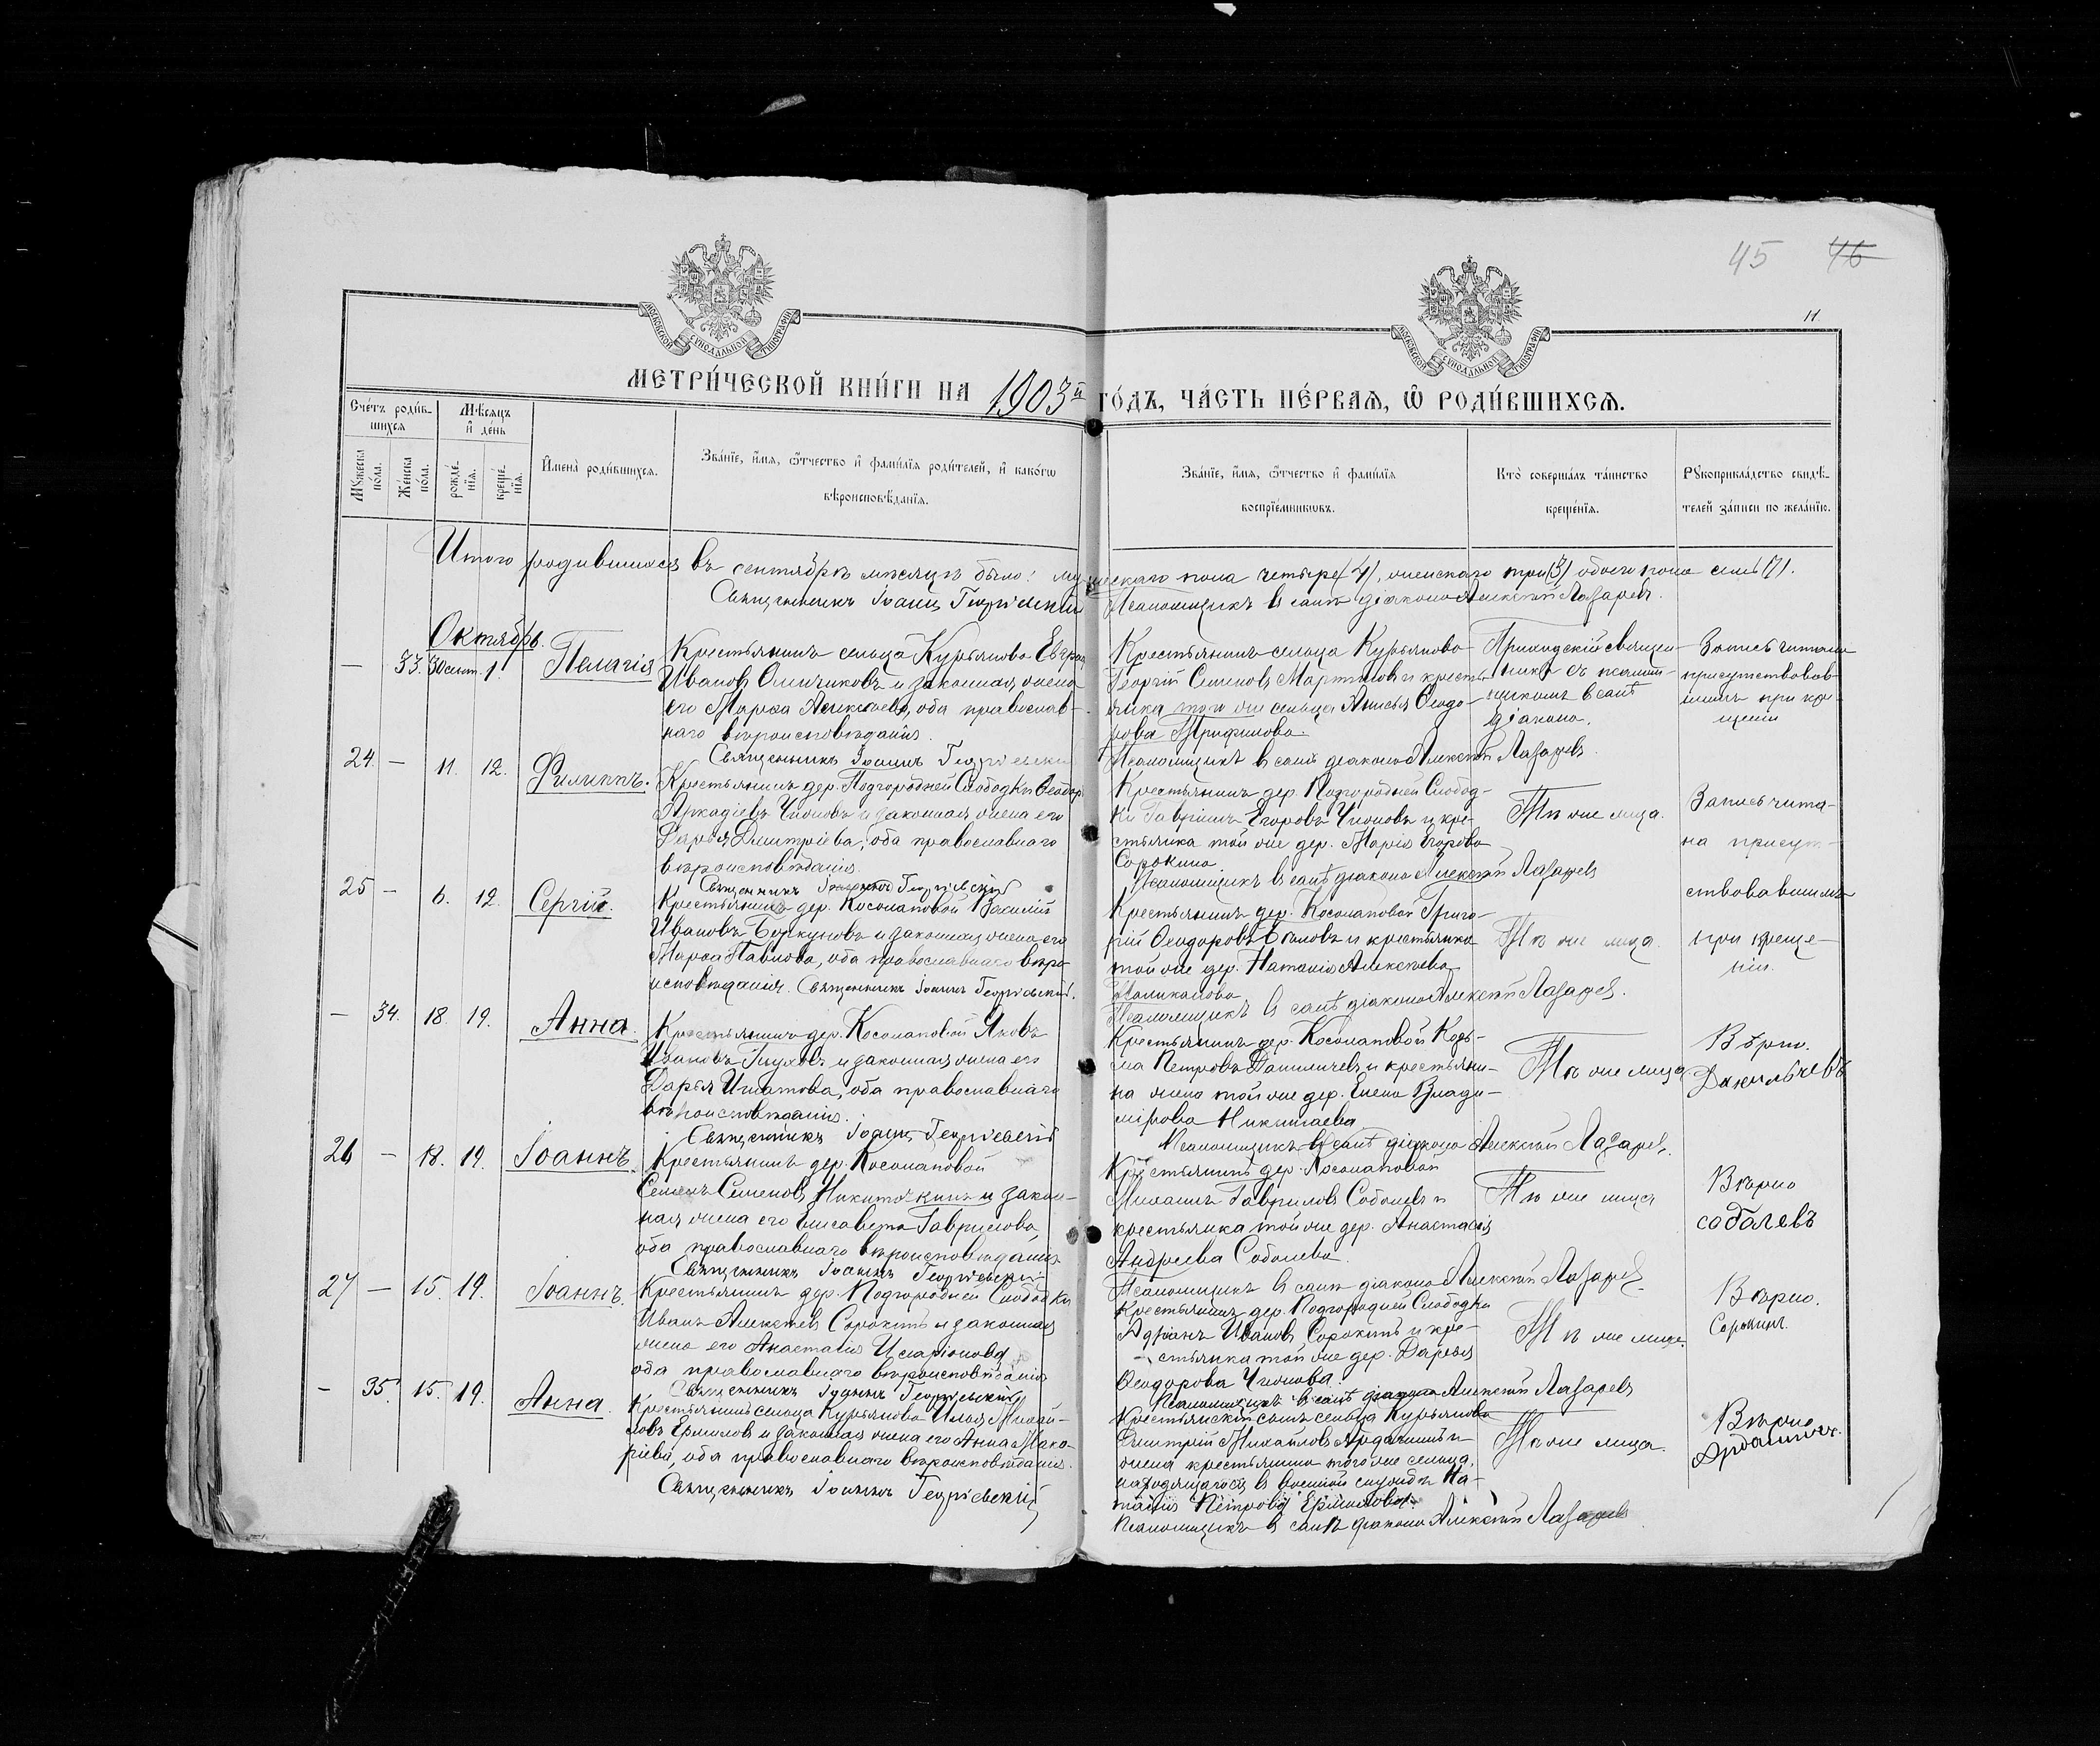 45 46
11
МОСКОВСКОЙ СѴНОДАЛЬНОЙ ТИПОГРАФІИ
МОСКОВСКОЙ СѴНОДАЛЬНОЙ ТИПОГРАФІИ
МЕТРИ́ЧЕСКОЙ КНИ́ГИ НА 1903й ГО́ДЪ, ЧА́СТЬ ПЕ́РВАѦ, Ѽ РОДИ́ВШИХСѦ.
Сче́тъ роди́в-
шихсѧ
Мѣ́сѧцъ
и҆ де́нь
И҆мена̀ роди́вшихсѧ.
Зва́нїе, и҆́мѧ, ѻ҆́тчество и҆ фами́лїѧ роди́телей, и҆ како́гѡ
вѣроисповѣ́данїѧ.
Зва́нїе, и҆́мѧ, ѻ҆́тчество и҆ фами́лїѧ
воспрїе́мникѡвъ.
Кто̀ соверша́лъ та́инство
креще́нїѧ.
Рꙋкоприкла́дство свидѣ́-
телей за́писи по жела́нїю.
Мꙋ́жеска
по́ла.
Же́нска
по́ла.
рожде́-
нїѧ.
креще́-
нїѧ.
Итого родившихся въ сентябрѣ мѣсяцѣ было: мужескаго пола четыре (4), женскаго три (3) обоего пола семь (7).
Священникъ Іоаннъ Георгіевскій Псаломщикъ въ санѣ діакона Алексѣй Лазаревъ.
Октябрь
— 33. 30 сент. 1. Пелагія
Крестьянинъ сельца Курьянова
Ивановъ и законная жена
его Марѳа Алексѣева, оба православ-
наго вѣроисповѣданія.
Священникъ Іоаннъ Георгіевскій
Крестьянинъ сельца Курьянова
Георгій Семеновъ Мартыновъ и кресть-
янка того же сельца Анисья Ѳеодо-
рова Трифонова
Псаломщикъ въ санѣ діакона Алексѣй Лазаревъ.
Приходскій священ-
никъ съ псалом-
щикомъ въ санѣ
діакона.
Запись читана
присутствовав-
шимъ при кре-
щеніи
24. — 11. 12. Филиппъ.
Крестьянинъ дер. Подгородней Слободки Ѳеодоръ
Аркадіевъ Чижовъ и законная жена его
Дарья Дмитріева, оба православнаго
вѣроисповѣданія.
Священникъ Іоаннъ Георгіевскій
Крестьянинъ дер. Подгородней Слобод-
ки Гавріилъ Егоровъ Чижовъ и кре-
стьянка той же дер. Марія Егорова
Сорокина
Псаломщикъ въ санѣ діакона Алексѣй Лазаревъ
Тѣ же лица.
Запись чита-
на присут-
ствовавшимъ
при креще-
ніи.
25 — 6. 12. Сергій.
Крестьянинъ дер. Косолаповой Василій
Ивановъ и законная жена его
Марѳа Павлова, оба православнаго вѣро-
исповѣданія. Священникъ Іоаннъ Георгіевскій.
Крестьянинъ дер. Косолаповой Григо-
рій Ѳеодоровъ и крестьянка
той же дер. Наталія Алексѣева
Псаломщикъ въ санѣ діакона Алексѣй Лазаревъ.
Тѣ же лица.
— 34. 18. 19. Анна.
Крестьянинъ дер. Косолаповой Яковъ
Ивановъ Глуховъ и законная жена его
Дарья Игнатова, оба православнаго
вѣроисповѣданія.
Священникъ Іоаннъ Георгіевскій
Крестьянинъ дер. Косолаповой Козь-
ма Петровъ Данилычевъ и крестьяни-
на жена той же дер. Елена Влади-
мірова Николаева
Псаломщикъ въ санѣ діакона Алексѣй Лазаревъ.
Тѣ же лица
Вѣрно.
Данилычевъ
26 — 18. 19. Іоаннъ.
Крестьянинъ дер. Косолаповой
Семенъ Семеновъ Никиточкинъ и закон-
ная жена его Елисавета Гаврилова,
оба православнаго вѣроисповѣданія
Священникъ Іоаннъ Георгіевскій
Крестьянинъ дер. Косолаповой
Михаилъ Гавриловъ Соболевъ и
крестьянка той же дер. Анастасія
Андреева Соболева.
Псаломщикъ въ санѣ діакона Алексѣй Лазаревъ.
Тѣ же лица
Вѣрно
собалевъ
27 — 15. 19. Іоаннъ.
Крестьянинъ дер. Подгородней Слободки
Иванъ Алексѣевъ Сорокинъ и законная
жена его Анастасія Иларіонова
оба православнаго вѣроисповѣданія
Священникъ Іоаннъ Георгіевскій
Крестьянинъ дер. Подгородней Слободки
Адріанъ Ивановъ Сорокинъ и кре-
стьянка той же дер. Дарья
Ѳеодорова Чижова
Псаломщикъ въ санѣ діакона Алексѣй Лазаревъ
Тѣ же лица.
Вѣрно.
Сорокинъ.
— 35. 15. 19. Анна.
Крестьянинъ сельца Курьянова Илья Михай-
ловъ Ермиловъ и законная жена его Анна Мака-
ріева, оба православнаго вѣроисповѣданія.
Священникъ Іоаннъ Георгіевскій
Крестьянскій сынъ сельца Курьянова
Дмитрій Михайловъ и
жена крестьянина того же сельца,
находящагося въ военной службѣ На-
талія Петрова Ермилова
Псаломщикъ въ санѣ діакона Алексѣй Лазаревъ
Тѣ же лица.
Вѣрно